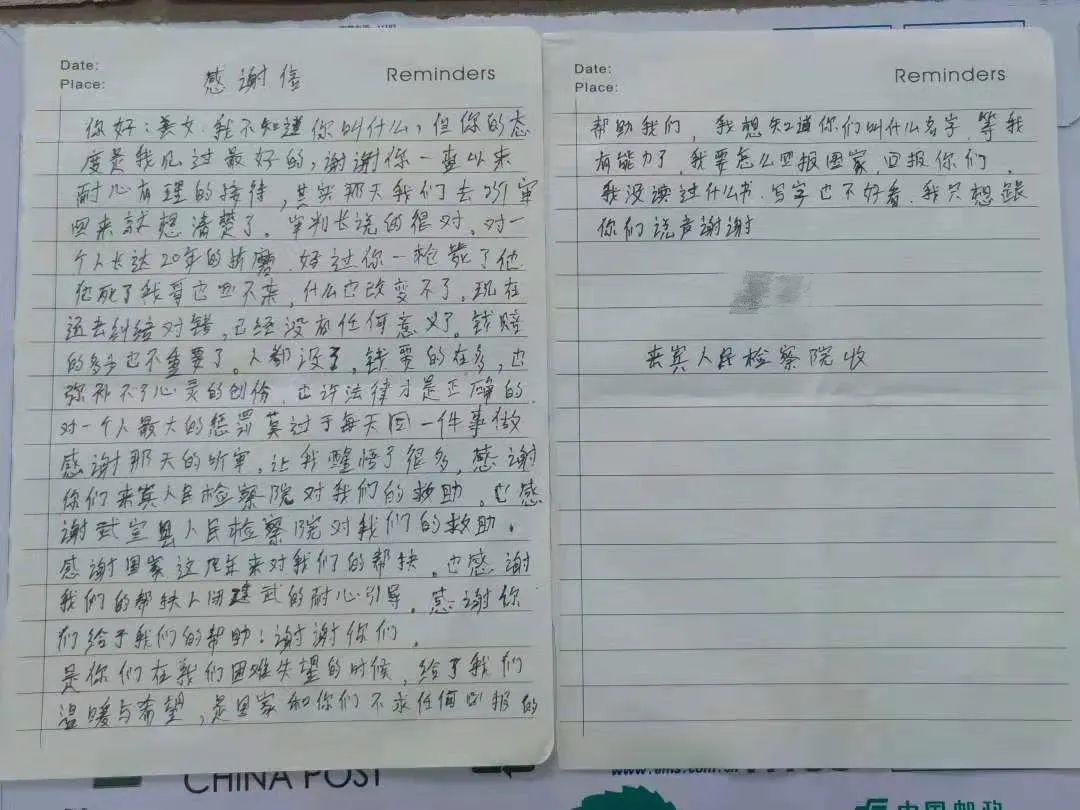 Date:
Place:
感谢信
Reminders
你好:美女.我不知道你叫什么,但你的态
度是我见过最好的,谢谢你一直以来
耐心有理的接待,其实那天我们去听审
回来就想清楚了。审判长说的很对.对一
个人长达20年的折磨.好过你一枪毙了他.
他死了我哥也回不来,什么也改变不了.现在
还去纠结对错,已经没有任何意义了。钱赔
的多少也不重要了。人都没了,钱要的在多,也
弥补不了心灵的创伤.也许法律才是正确的.
对一个人最大的惩罚莫过于每天回一件事做
感谢那天的听审,让我醒悟了很多,感谢
你们来宾人民检察院对我们的救助。也感
谢武宣县人民检察院对我们的救助。
感谢国家这几年来对我们的帮扶.也感谢
我们的帮扶人 建武的耐心引导。感谢你
们给于我们的帮助:谢谢你们.
是你们在我们困难失望的时候,给了我们
温暖与希望,是国家和你们不求任何回报的
Date:
Place:
Reminders
帮助我们,我想知道你们叫什么名字.等我
有能力了.我要怎么回报国家.回报你们.
我没读过什么书.写字也不好看.我只想跟
你们说声谢谢
来宾人民检察院收
CHINA POST
www.ems.com.cn
中国邮政